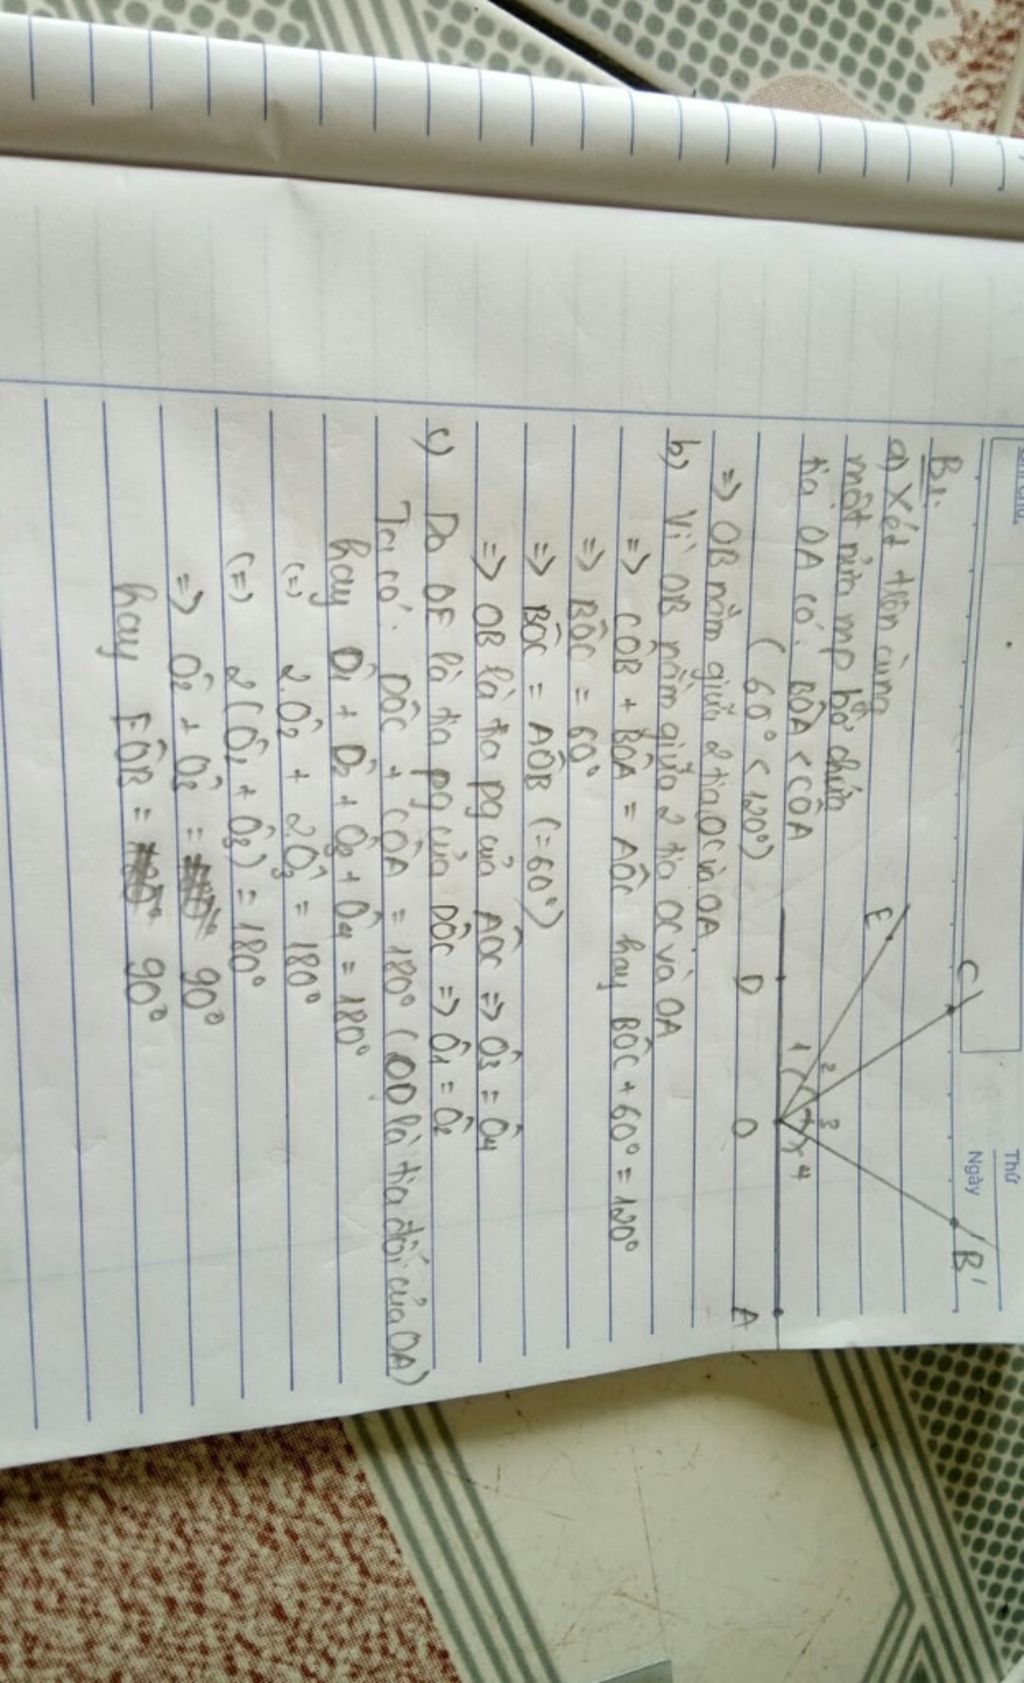 Thứ
Ngày
B1:
a) Xét trên cùng
một nửa mp bờ chứa
tia OA có: BÔA < CÔA
( 60° < 120°)
=> OB nằm giữa 2 tia OC và OA
E
C
B
1
2
3
4
D
O
A
b) Vì OB nằm giữa 2 tia OC và OA
=> CÔB + BÔA = AÔC hay BÔC + 60° = 120°
=> BÔC = 60°
=> BÔC = AÔB (=60°)
=> OB là tia pg của AÔC => Ô3 = Ô4
c) Do OE là tia pg của DÔC => Ô1 = Ô2
Ta có: DÔC + CÔA = 180° (OD là tia đối của OA)
hay Ô1 + Ô2 + Ô3 + Ô4 = 180°
(=) 2.Ô2 + 2Ô3 = 180°
(=) 2(Ô2 + Ô3) = 180°
=> Ô2 + Ô3 = 90°
hay EÔB = 90°